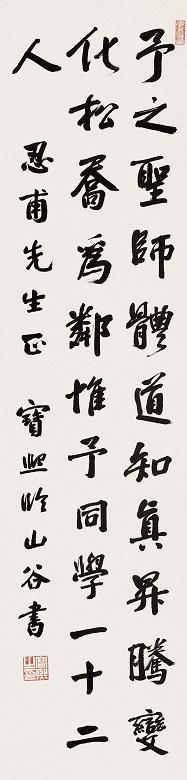 予之聖師體道知真昇騰變
化松喬為鄰惟予同學一十二
人
忍甫先生正 寶熙臨山谷書